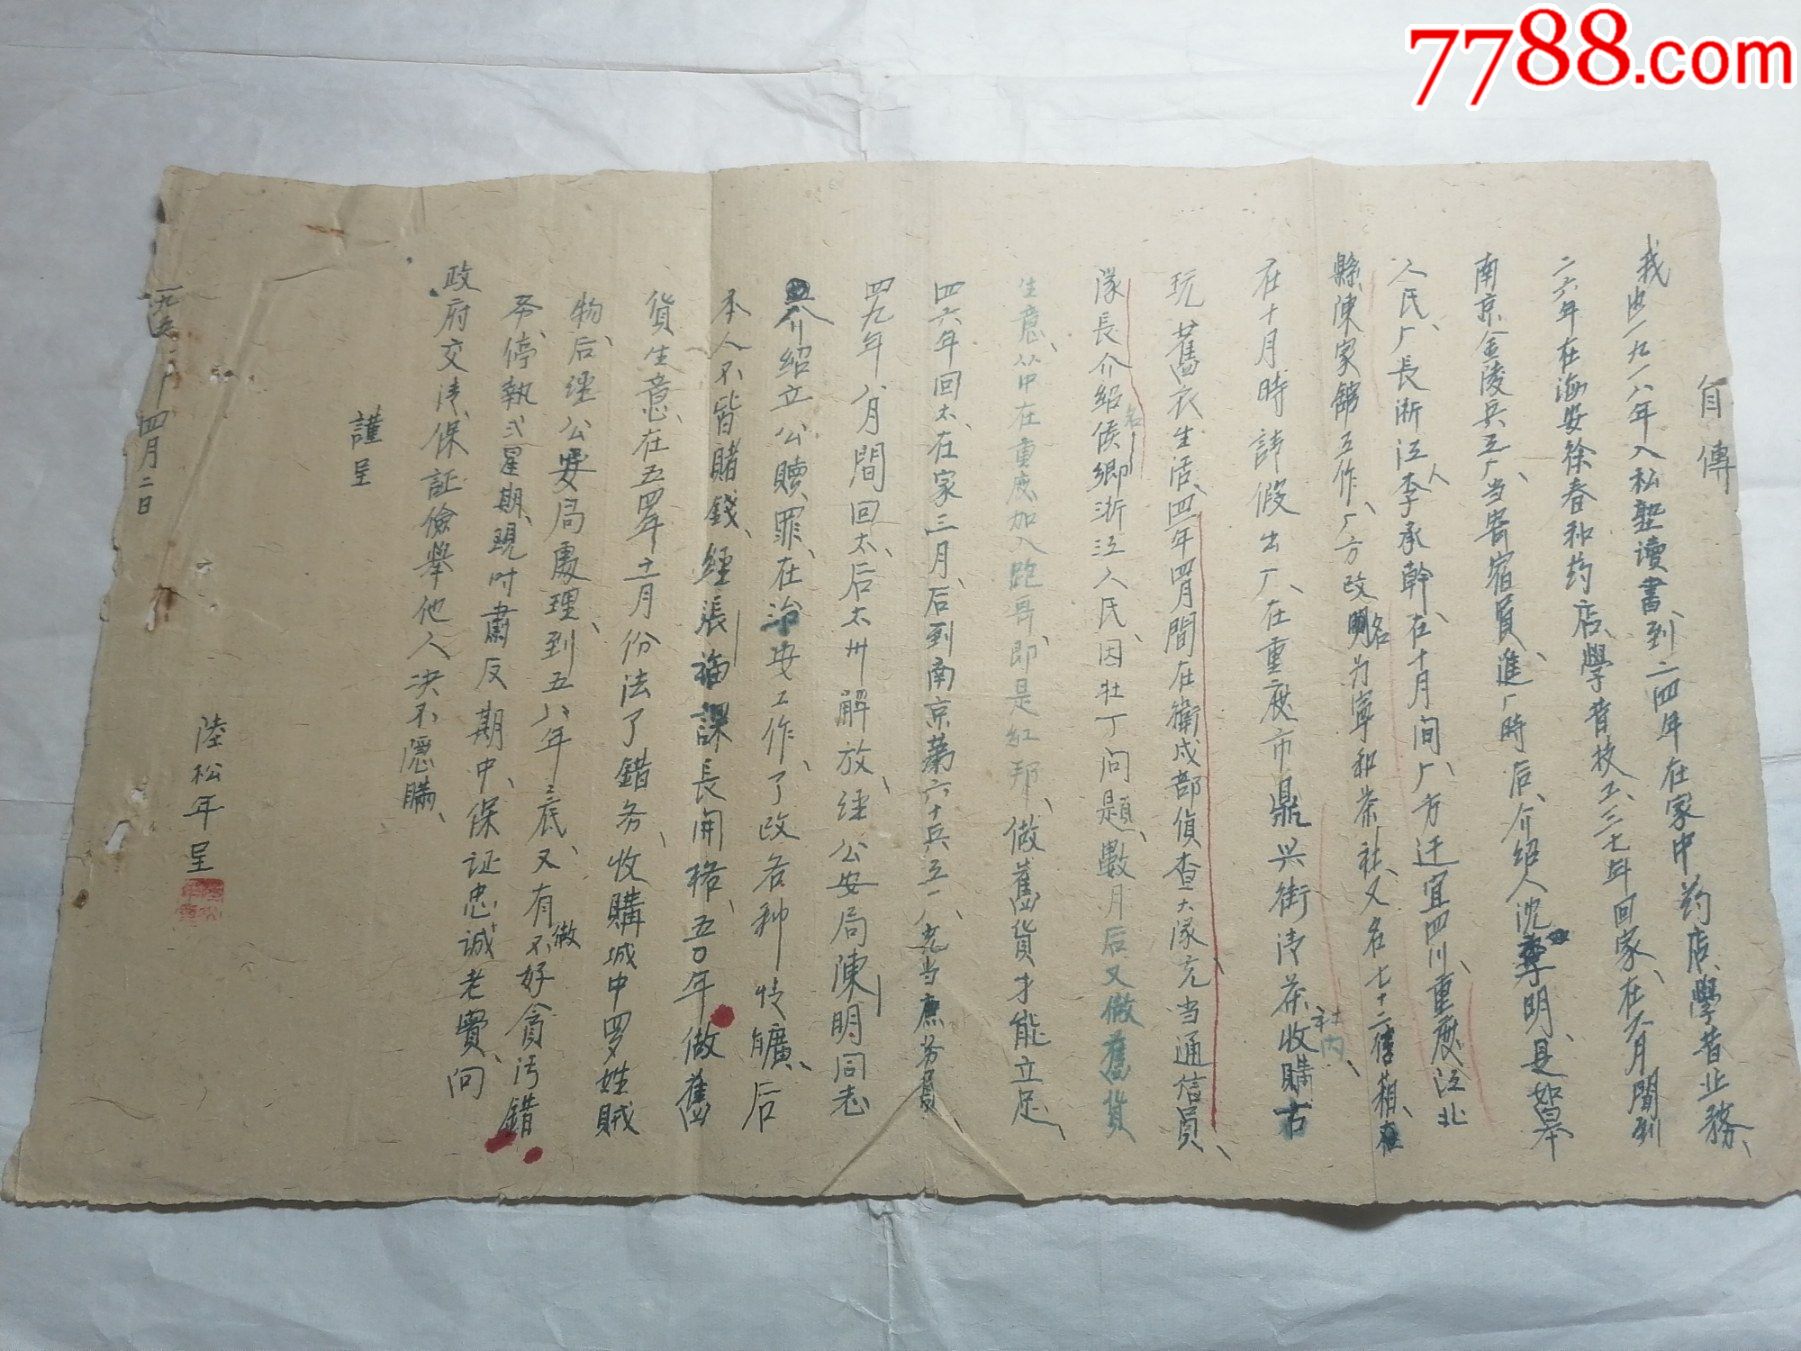 7788.com
自傳
我由一九一八年入私塾讀書、到二四年在家中药店、學習业務、
二六年在海安徐春和药店、學習技工、三七年回家、在六月間到
南京金陵兵工厂、当寄宿員、進厂時后、介绍人沈明、是如皋
人民、厂長浙江人李承幹、在十月间、厂方迁宜四川、重慶江北
縣陳家館工作、厂方改名为寧和茶社、又名七十二信箱、在
在十月時請假出厂、在重慶市鼎兴街清茶社内、收購古
玩、舊衣生活、四一年四月間在衛戍部偵查大隊充当通信員、
隊長介紹侯名卿浙江人民、因壮丁问題、數月后又做舊貨
生意、从中在重慶加入跑哥、即是红邦、做舊貨才能立足、
四六年回太、在家三月、后到南京苐六十兵工厂、充当庶务員
四九年八月間回太、后太州解放、经公安局陳明同志
介紹立公贖罪、在治安工作、了改各种恃曠、后
本人不皆賭錢、经張福課長闹格、五〇年做舊
貨生意、在五四年十一月份法了錯务、收購城中罗姓贼
物、后经公安局處理、到五八年底、又有做不好貪污錯
务、停執弍星期、現时肅反期中、保证忠诚老實、向
政府交清、保証儉舉他人决不隱瞒、
謹呈
陸松年呈
四月二日